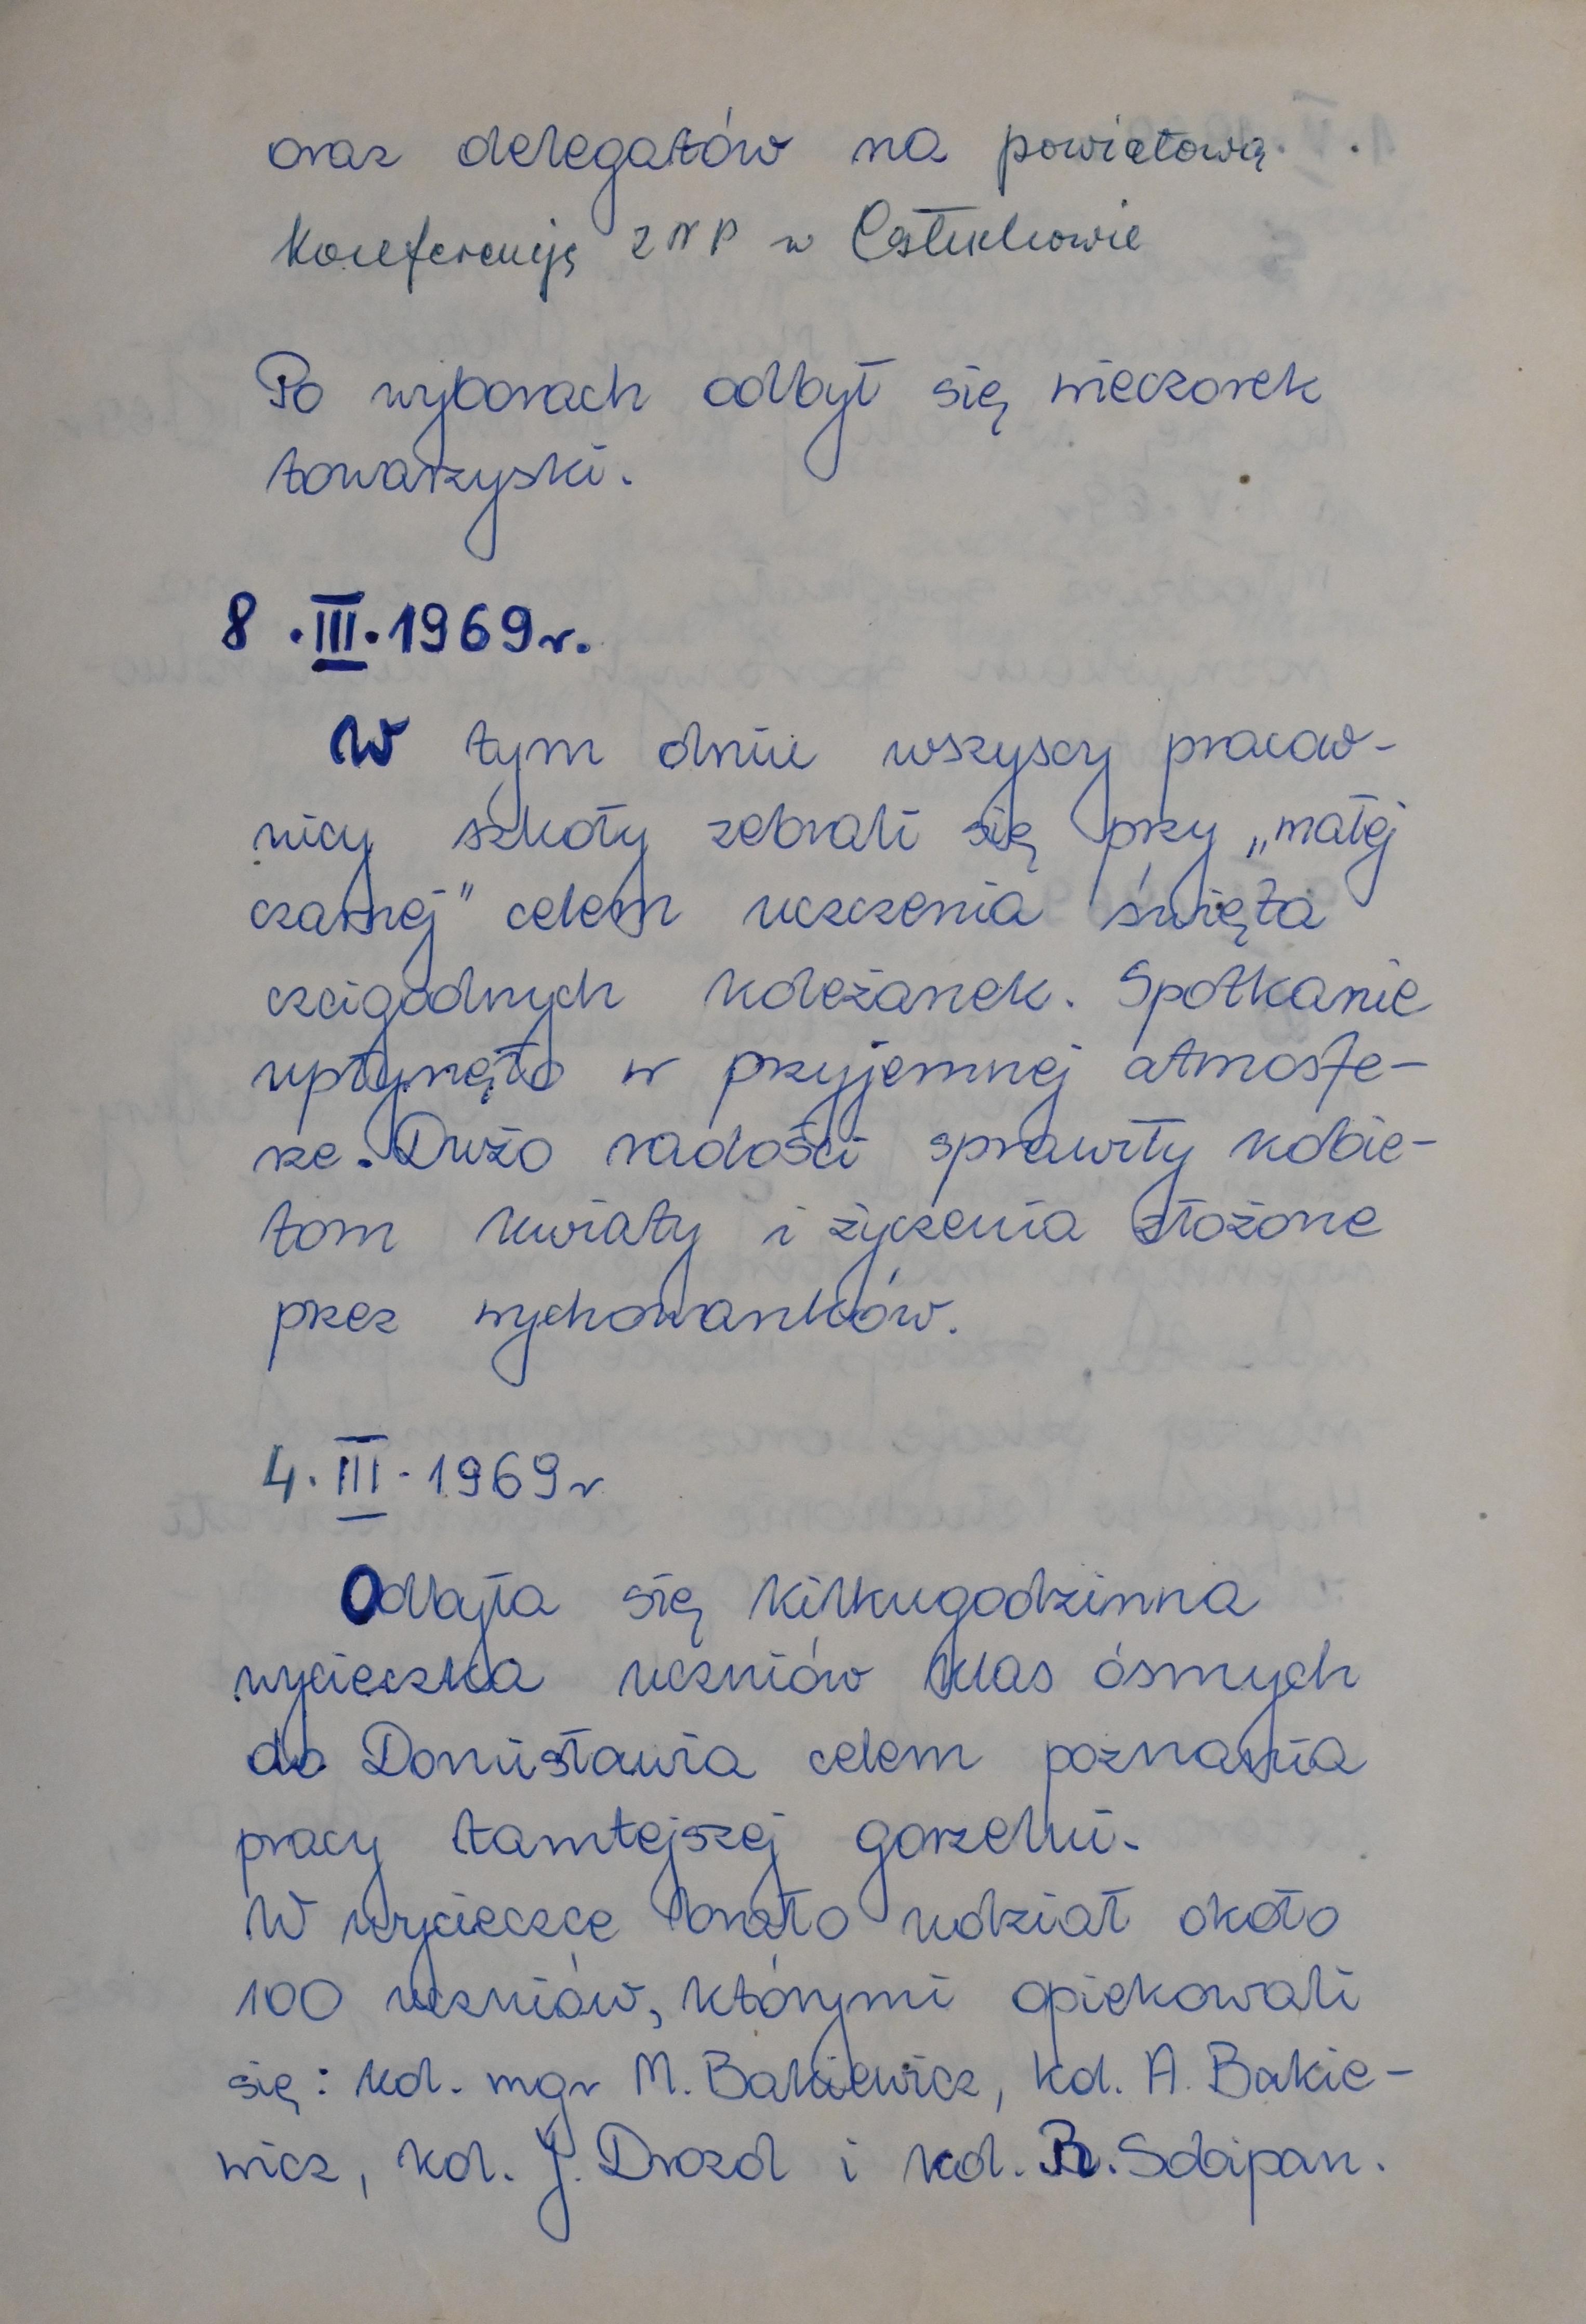 oraz delegatów na powiatową
Konferencję ZNP w Człuchowie
Po wyborach odbył się wieczorek
towarzyski.
8.III.1969r.
W tym dniu wszyscy pracow-
nicy szkoły zebrali się przy „małej
czarnej" celem uczczenia święta
czcigodnych koleżanek. Spotkanie
upłynęło w przyjemnej atmosfe-
rze. Dużo radości sprawiły kobie-
tom kwiaty i życzenia złożone
przez wychowanków.
4.III.1969r
Odbyła się kilkugodzinna
wycieczka uczniów klas ósmych
do Donisławia celem poznania
pracy tamtejszej gorzelni.
W wycieczce brało udział około
100 uczniów, którymi opiekowali
się: kol. mgr M. Bakiewicz, kol. A. Bakie-
wicz, kol. J. Drozd i kol.